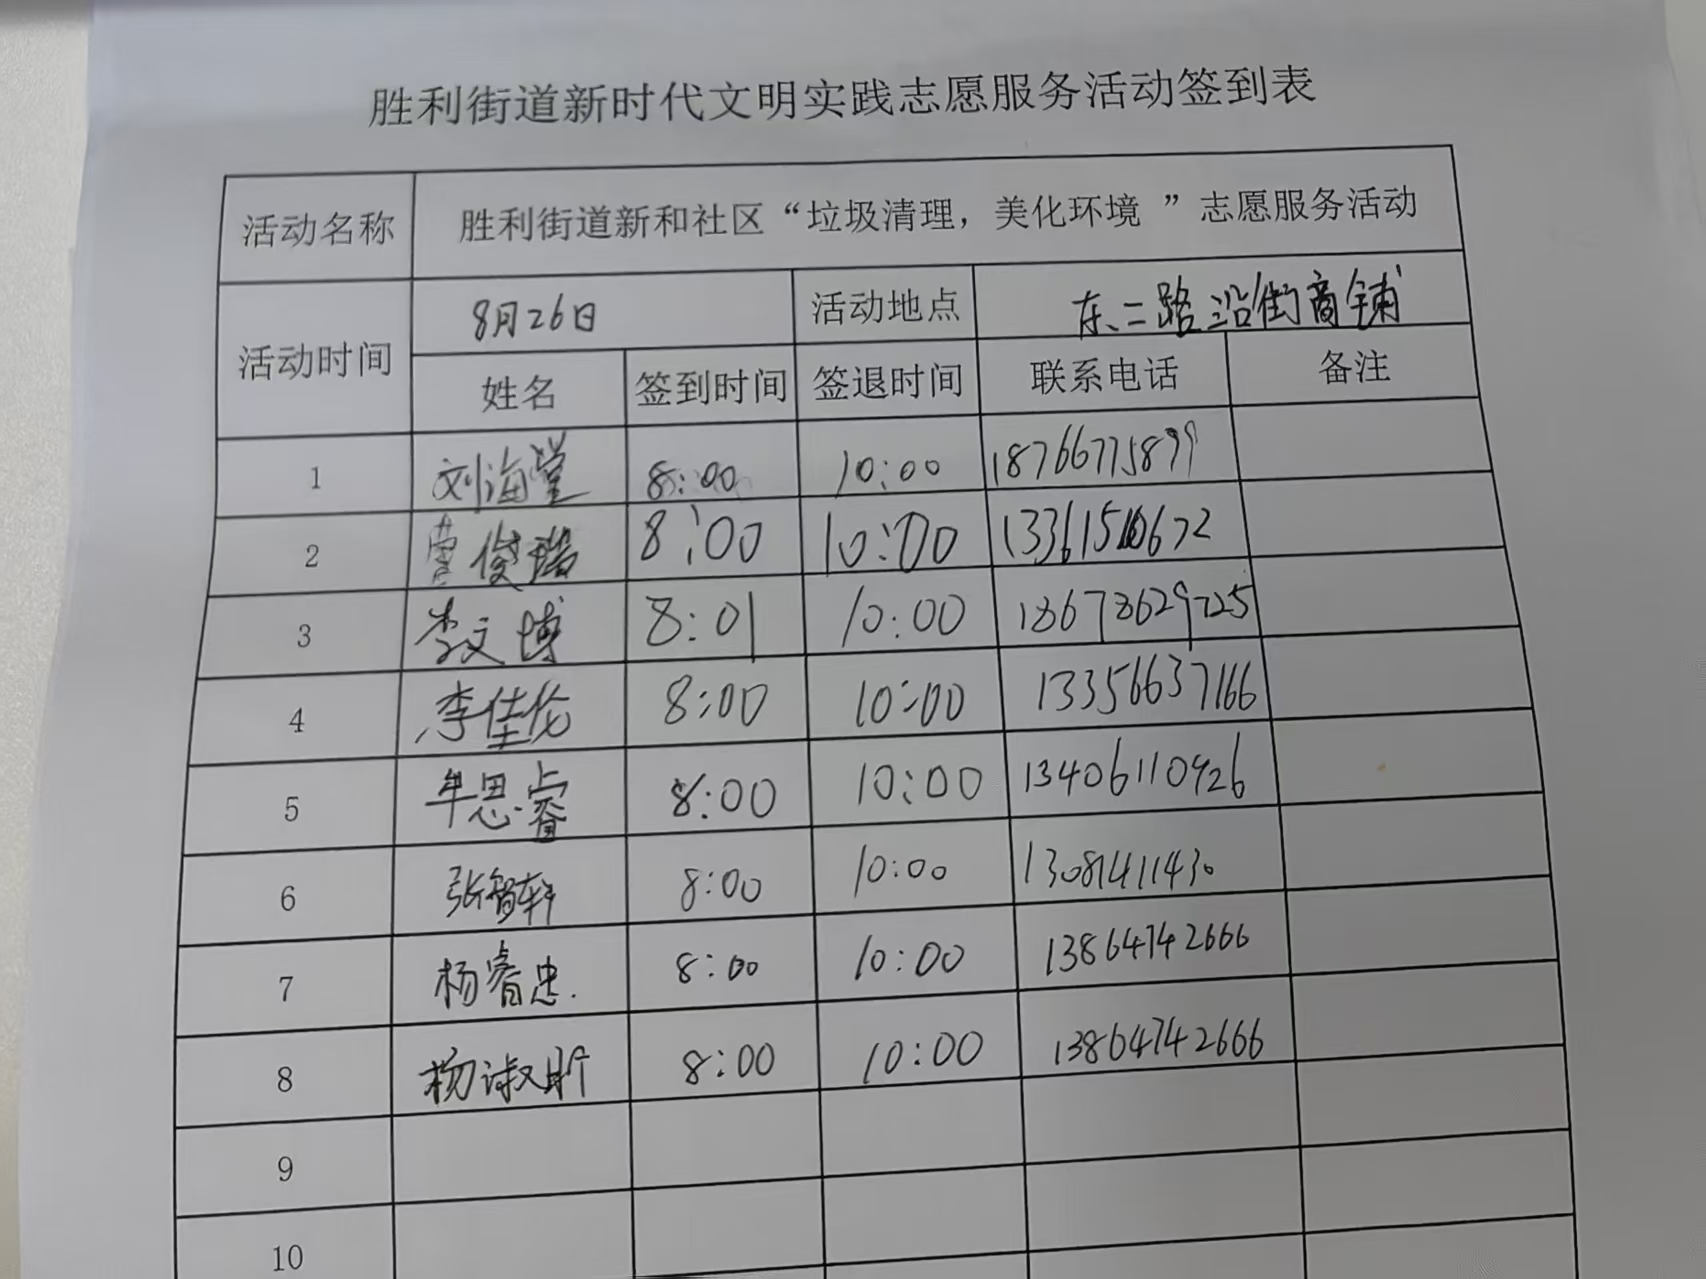 胜利街道新时代文明实践志愿服务活动签到表
活动名称 胜利街道新和社区“垃圾清理，美化环境 ”志愿服务活动
活动时间 8月26日 活动地点 东二路沿街商铺
姓名 签到时间 签退时间 联系电话 备注
1 刘海堂 8:00 10:00 18766775899
2 曹俊瑞 8:00 10:00
3 李文博 8:01 10:00 18678629725
4 李佳伦 8:00 10:00 13356637166
5 牟思睿 8:00 10:00 13406110926
6 张智轩 8:00 10:00 13081411430
7 杨睿忠 8:00 10:00 13864742666
8 杨淑斯 8:00 10:00 13864742666
9
10